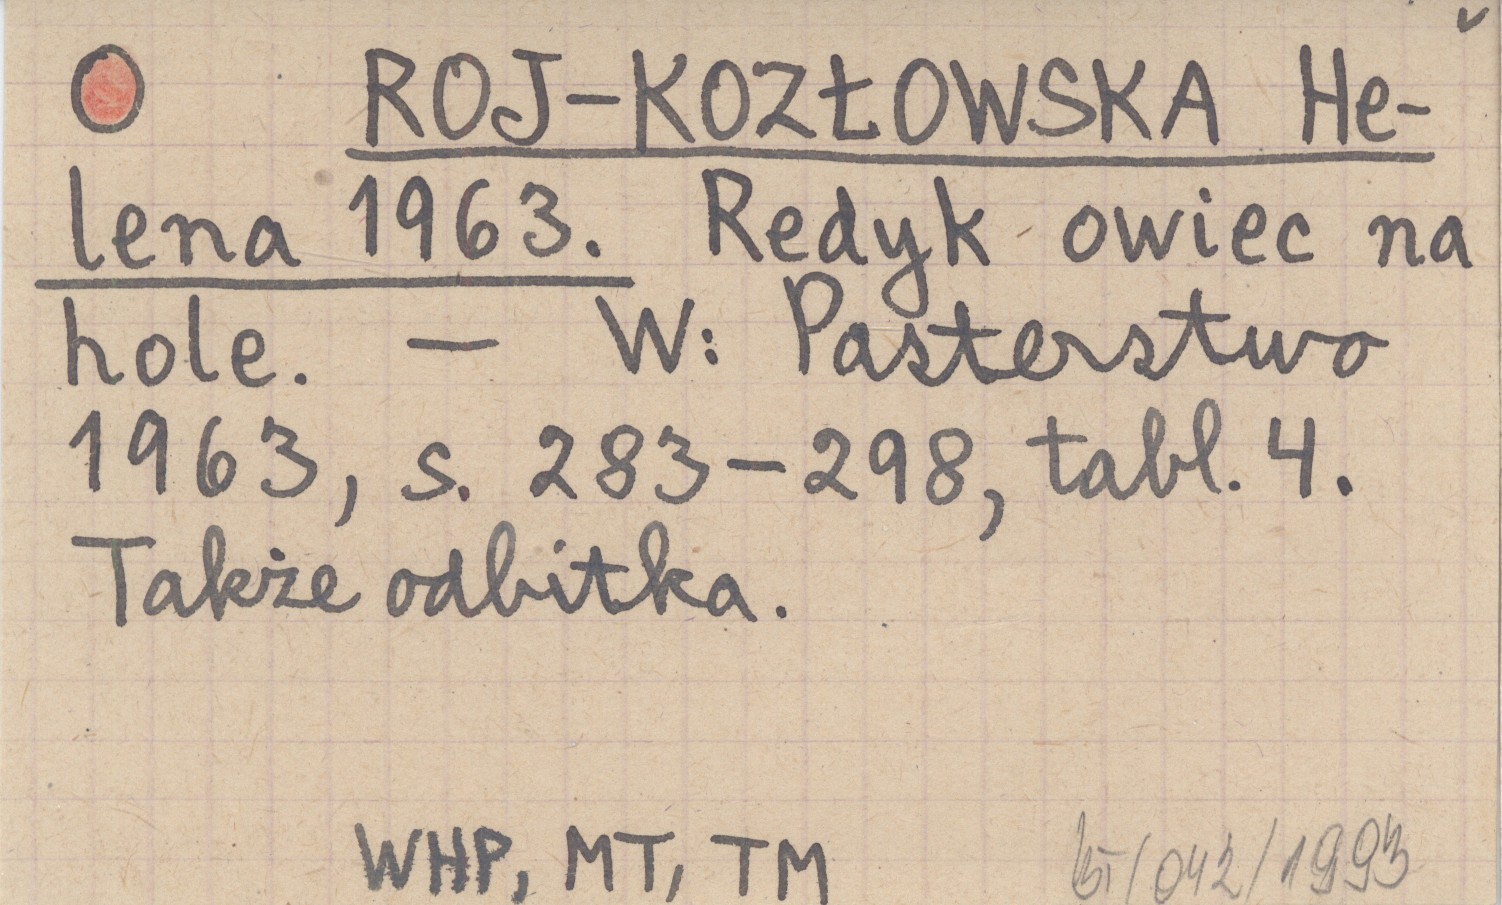 ROJ-KOZŁOWSKA He-
lena 1963. Redyk owiec na
hole. — W: Pasterstwo
1963, s. 283-298, tabl. 4.
Także odbitka.
WHP, MT, TM
/042/1993